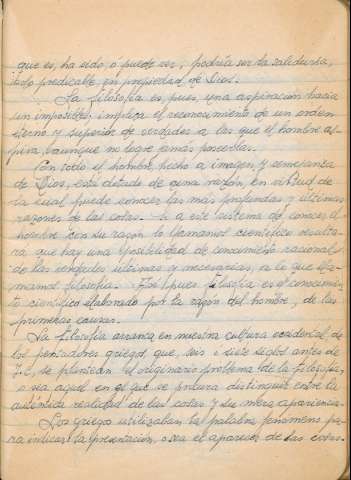 que es, ha sido, o puede ser, podría ser la sabiduría,
todo predicable, en propiedad de Dios.
La filosofía es, pues, una aspiración hacia
un imposible; implica el reconocimiento de un orden
eterno y superior de verdades a las que el hombre as-
pira, aunque no logre jamás poseerlas.
Con todo el hombre, hecho a imagen y semejanza
de Dios, está dotado de una razón, en virtud de
la cual puede conocer las más profundas y últimas
razones de las cosas. Si a este sistema de conocer el
hombre con su razón lo llamamos científico resulta-
rá que hay una posibilidad de conocimiento racional
de las verdades últimas y necesarias, a lo que lla-
mamos filosofía. Es pues filosofía es el conocimien-
to científico elaborado por la razón del hombre, de las
primeras causas.
La Filosofía arranca en nuestra cultura occidental, de
los pensadores griegos, que, seis o siete siglos antes de
J.C., se plantean el originario problema de la filosofía,
o sea aquel en el que se procura distinguir entre la
auténtica realidad de las cosas y su mera apariencia.
Los griegos utilizaban la palabra fenómeno pa-
ra indicar la presentación, o sea el aparecer de las cosas.